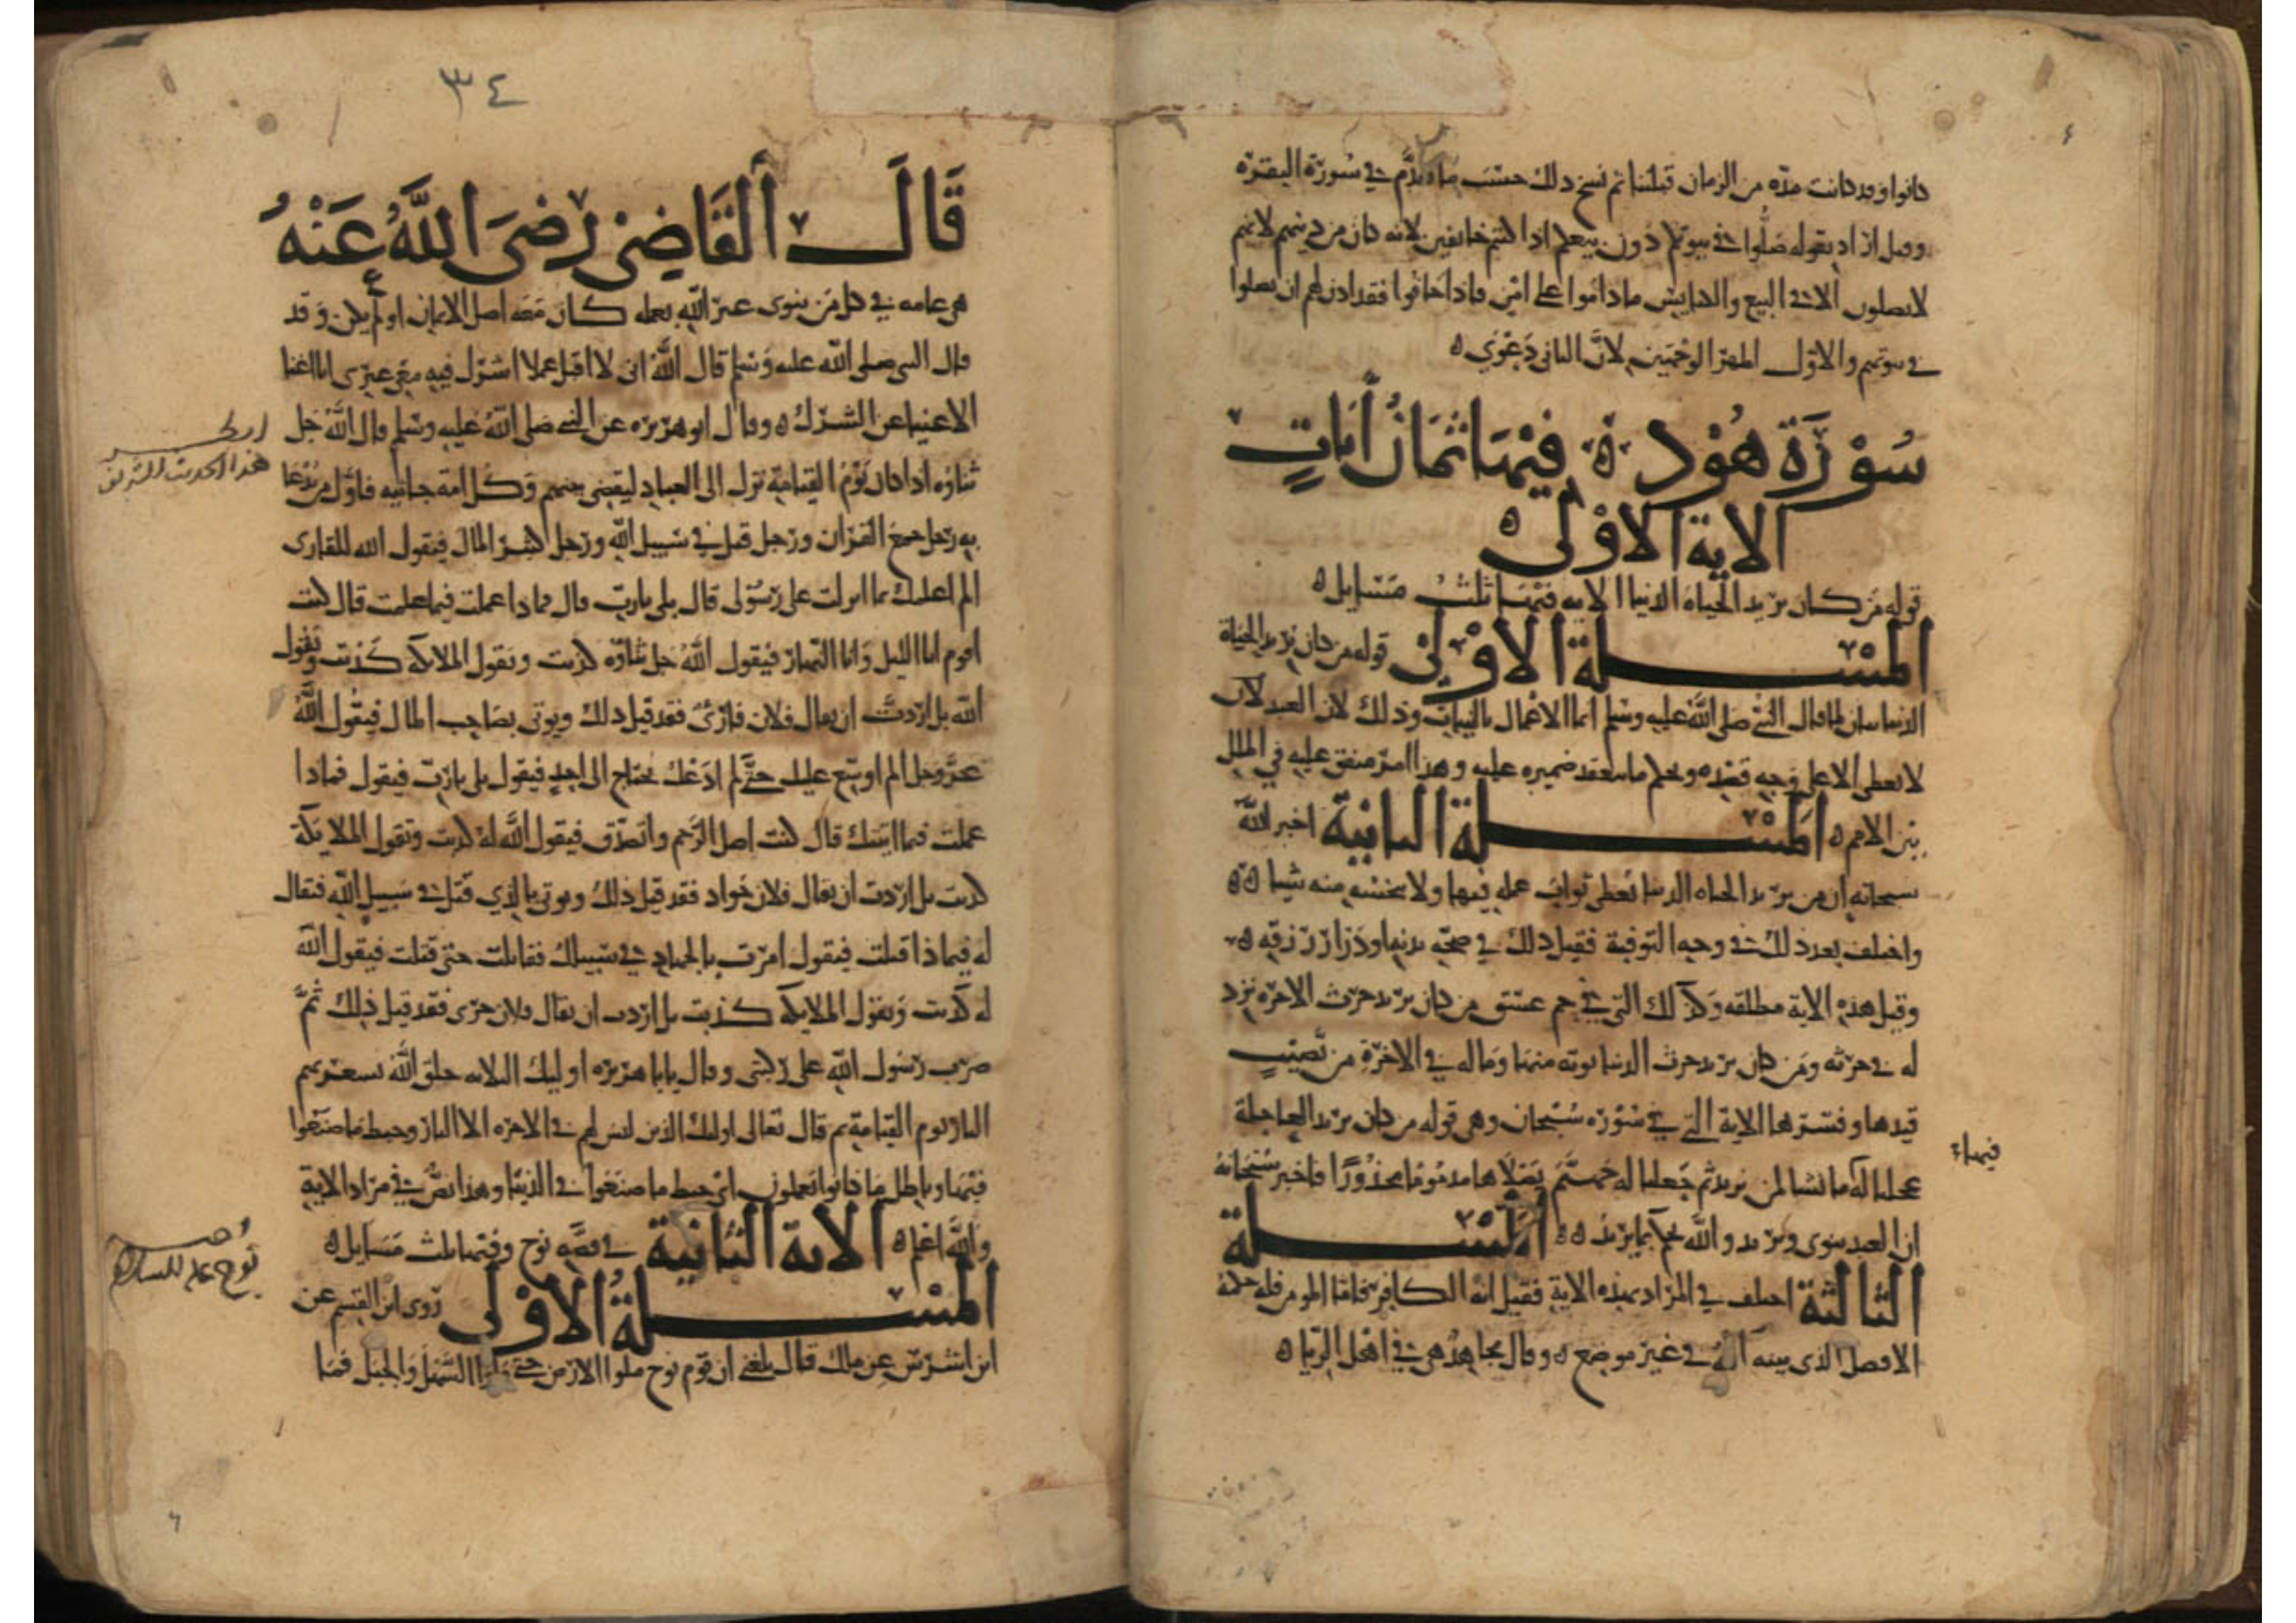 كانوا وقد كانت مدة من الزمان قبلتنا ثم نسخ ذلك حسب ما تقدم في سورة البقرة
وقيل اراد بقوله صلوا في بيوتكم دون بيعكم اذا كنتم خائفين لانه كان من دينهم لانهم
لا يصلون الا في البيع والكنايس ما داموا على امن فاذا خافوا فقد اذن لهم ان يصلوا
في بيوتهم والاول اظهر الوجهين لان الثاني دعوى ه
سورة هود ه فيها ثمان ايات
الاية الاولى ه
قوله من كان يريد الحياة الدنيا الاية فيها ثلث مسايل ه
المسلة الاولى قوله من كان يريد الحياة
الدنيا بيان لما قال النبي صلى الله عليه وسلم انما الاعمال بالنيات وذلك لان العبد لان
لا يعطى الا على وجه قصده وبحكم ما ينعقد ضميره عليه وهذا امر متفق عليه في الملل
بين الامم ه المسلة الثانية اخبر الله
سبحانه ان من يريد الحياة الدنيا يعطى ثواب عمله فيها ولا يبخس منه شيا ه ه
واختلف بعد ذلك في وجه التوفية فقيل ذلك في صحة بدنه او درار رزقه ه
وقيل هذه الاية مطلقه وكذلك التي في حم عسق من كان يريد حرث الاخرة نزد
له في حرثه ومن كان يريد حرث الدنيا نوته منها وما له في الاخرة من نصيب
قيدها وفسرها الاية التي في سورة سبحان وهي قوله من كان يريد العاجلة
عجلنا له ما نشا لمن نريد ثم جعلنا له جهنم يصلاها مذموما مدحورا فاخبر سبحانه
فيها
ان العبد ينوي ويريد والله يحكم بما يريد ه ه المسلة
الثالثة اختلف في المراد بهذه الاية فقيل انه الكافر فاما المومن فله حكمه
الافضل الذي بينه الله في غير موضع ه وقال مجاهد هي في اهل الريا ه
٣٤
قال القاضي رضي الله عنه
هي عامه في كل من ينوي غير الله بعمله كان معه اصل الايمان او لم يكن وقد
قال النبي صلى الله عليه وسلم قال الله اني لا اقبل عملا اشرك فيه معي غيري انا اغنا
الاغنيا عن الشرك ه وقال ابو هريره عن النبي صلى الله عليه وسلم قال الله جل
هذا الحديث الشريف
ثناوه اذا كان يوم القيامة نزل الى العباد ليقضي بينهم وكل امة جاثيه فاول من يدعا
به رجل جمع القران ورجل قتل في سبيل الله ورجل كثير المال فيقول الله للقارى
الم اعلمك ما انزلت على رسولي قال بلى يارب قال فماذا عملت فيما علمت قال كنت
اقوم انا الليل وانا النهار فيقول الله جل ثناوه كذبت وتقول الملايكة كذبت ويقول
الله بل اردت ان يقال فلان قارئ فقد قيل ذلك ويوتى بصاحب المال فيقول الله
عز وجل الم اوسع عليك حتى لم ادعك تحتاج الى احد فيقول بلى يارب فيقول فماذا
عملت فيما اتيتك قال كنت اصل الرحم واتصدق فيقول الله له كذبت وتقول الملايكة
كذبت بل اردت ان يقال فلان جواد فقد قيل ذلك ويوتى بالذي قتل في سبيل الله فيقال
له فيماذا قتلت فيقول امرت بالجهاد في سبيلك فقاتلت حتى قتلت فيقول الله
له كذبت وتقول الملايكة كذبت بل اردت ان يقال فلان جرى فقد قيل ذلك ثم
ضرب رسول الله على ركبتي وقال يابا هريره اوليك الثلاثه خلق الله تسعر بهم
النار يوم القيامة ثم قال تعالى اولئك الذين ليس لهم في الاخره الا النار وحبط ما صنعوا
فيها وباطل ما كانوا يعملون اي حبط ما صنعوا في الدنيا وهذا نص في مراد الاية
والله اعلم ه الاية الثانية في قصة نوح وفيها ثلث مسايل ه
نوح عليه السلام
المسلة الاولى روى ابن القسم عن
ابن اشرس عن ملك قال بلغني ان قوم نوح ملوا الارض حتى ملوا السهل والجبل فما